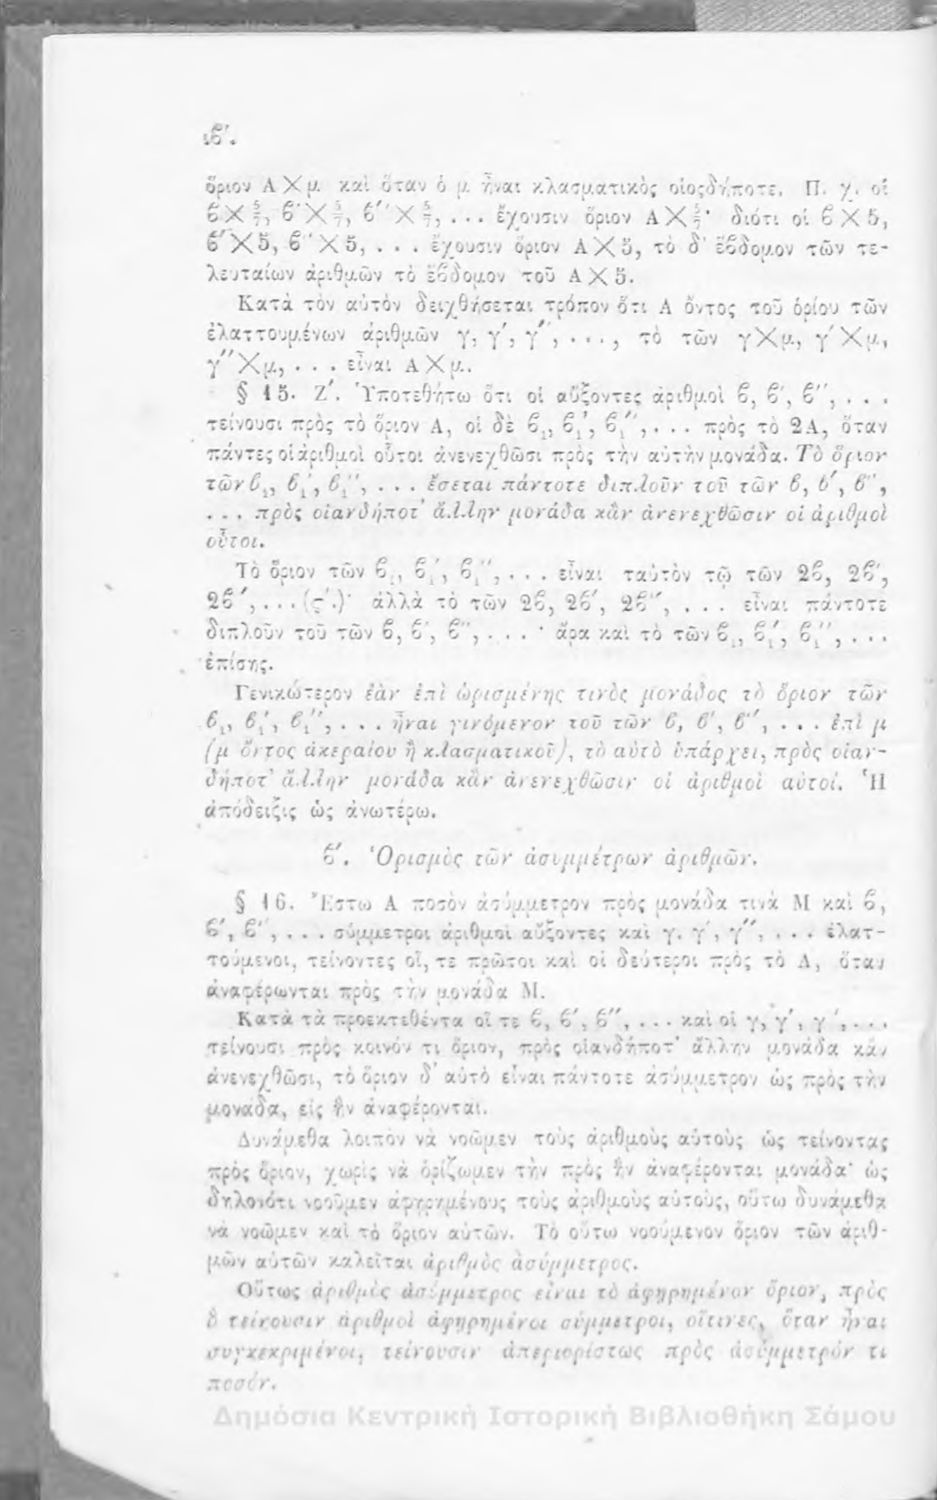 ιϐ´.
ὅριον Α Χ μ καὶ ὅταν ὁ μ ἦναι κλασματικὸς οἱοςδήποτε. Π. χ. οἱ
ϐ Χ 5/7, ϐ΄ Χ 5/7, ϐ΄΄ Χ 5/7, . . . ἔχουσιν ὅριον Α Χ 5/7· διότι οἱ ϐ Χ 5,
ϐ΄ Χ 5, ϐ΄΄ Χ 5, . . . ἔχουσιν ὅριον Α Χ 5, τὸ δ᾽ ἕϐδομον τῶν τε-
λευταίων ἀριθμῶν τὸ ἕϐδομον τοῦ Α Χ 5.
Κατὰ τὸν αὐτὸν δειχθήσεται τρόπον ὅτι Α ὄντος τοῦ ὁρίου τῶν
ἐλαττουμένων ἀριθμῶν γ, γ΄, γ΄΄, . . . , τὸ τῶν γ Χ μ, γ΄ Χ μ,
γ΄΄ Χ μ, . . . εἶναι Α Χ μ.
§ 15. Ζ΄. Ὑποτεθήτω ὅτι οἱ αὔξοντες ἀριθμοὶ ϐ, ϐ΄, ϐ΄΄, . . .
τείνουσι πρὸς τὸ ὅριον Α, οἱ δὲ ϐ₁, ϐ₁΄, ϐ₁΄΄, . . . πρὸς τὸ 2Α, ὅταν
πάντες οἱ ἀριθμοὶ οὗτοι ἀνενεχθῶσι πρὸς τὴν αὐτὴν μονάδα. Τὸ ὅριον
τῶν ϐ₁, ϐ₁΄, ϐ₁΄΄, . . . ἔσεται πάντοτε διπλοῦν τοῦ τῶν ϐ, ϐ΄, ϐ΄΄,
. . . πρὸς οἱανδήποτ᾽ ἄλλην μονάδα κἂν ἀνενεχθῶσιν οἱ ἀριθμοὶ
οὗτοι.
Τὸ ὅριον τῶν ϐ₁, ϐ₁΄, ϐ₁΄΄, . . . εἶναι ταὐτὸν τῷ τῶν 2ϐ, 2ϐ΄,
2ϐ΄΄, . . . (ς΄.)· ἀλλὰ τὸ τῶν 2ϐ, 2ϐ΄, 2ϐ΄΄, . . . εἶναι πάντοτε
διπλοῦν τοῦ τῶν ϐ, ϐ΄, ϐ΄΄, . . . · ἄρα καὶ τὸ τῶν ϐ₁, ϐ₁΄, ϐ₁΄΄, . . .
ἐπίσης.
Γενικώτερον ἐὰν ἐπὶ ὡρισμένης τινὸς μονάδος τὸ ὅριον τῶν
ϐ₁, ϐ₁΄, ϐ₁΄΄, . . . ἦναι γινόμενον τοῦ τῶν ϐ, ϐ΄, ϐ΄΄, . . . ἐπὶ μ
(μ ὄντος ἀκεραίου ἢ κλασματικοῦ), τὸ αὐτὸ ὑπάρχει, πρὸς οἱαν-
δήποτ᾽ ἄλλην μονάδα κἂν ἀνενεχθῶσιν οἱ ἀριθμοὶ αὐτοί. Ἡ
ἀπόδειξις ὡς ἀνωτέρω.
ϐ΄. Ὁρισμὸς τῶν ἀσυμμέτρων ἀριθμῶν.
§ 16. Ἔστω Α ποσὸν ἀσύμμετρον πρὸς μονάδα τινὰ Μ καὶ ϐ,
ϐ΄, ϐ΄΄, . . . σύμμετροι ἀριθμοὶ αὔξοντες καὶ γ, γ΄, γ΄΄, . . . ἐλατ-
τούμενοι, τείνοντες οἵ, τε πρῶτοι καὶ οἱ δεύτεροι πρὸς τὸ Α, ὅταν
ἀναφέρωνται πρὸς τὴν μονάδα Μ.
Κατὰ τὰ προεκτεθέντα οἵ τε ϐ, ϐ΄, ϐ΄΄, . . . καὶ οἱ γ, γ΄, γ΄΄, . . .
τείνουσι πρὸς κοινόν τι ὅριον, πρὸς οἱανδήποτ᾽ ἄλλην μονάδα κἂν
ἀνενεχθῶσι, τὸ ὅριον δ᾽ αὐτὸ εἶναι πάντοτε ἀσύμμετρον ὡς πρὸς τὴν
μονάδα, εἰς ἣν ἀναφέρονται.
Δυνάμεθα λοιπὸν νὰ νοῶμεν τοὺς ἀριθμοὺς αὐτοὺς ὡς τείνοντας
πρὸς ὅριον, χωρὶς νὰ ὁρίζωμεν τὴν πρὸς ἣν ἀναφέρονται μονάδα· ὡς
δηλονότι νοοῦμεν ἀφῃρημένους τοὺς ἀριθμοὺς αὐτούς, οὕτω δυνάμεθα
νὰ νοῶμεν καὶ τὸ ὅριον αὐτῶν. Τὸ οὕτω νοούμενον ὅριον τῶν ἀριθ-
μῶν αὐτῶν καλεῖται ἀριθμὸς ἀσύμμετρος.
Οὕτως ἀριθμὸς ἀσύμμετρος εἶναι τὸ ἀφῃρημένον ὅριον, πρὸς
ὃ τείνουσιν ἀριθμοὶ ἀφῃρημένοι σύμμετροι, οἵτινες, ὅταν ἦναι
συγκεκριμένοι, τείνουσιν ἀπεριορίστως πρὸς ἀσύμμετρόν τι
ποσόν.
Δημόσια Κεντρική Ιστορική Βιβλιοθήκη Σάμου